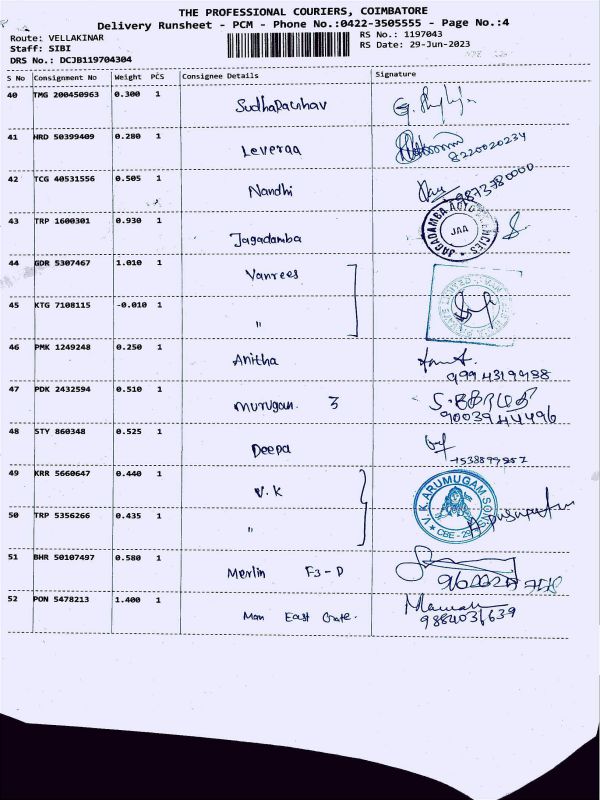 THE PROFESSIONAL COURIERS, COIMBATORE
Delivery Runsheet - PCM - Phone No.:0422-3505555 - Page No.:4
Route: VELLAKINAR
RS No.: 1197043
Staff: SIBI
RS Date: 29-Jun-2023
DRS No.: DCJB119704304
S No Consignment No Weight PCS Consignee Details Signature
40 TMG 200450963 0.300 1 SudhaRaghav
41 HRD 50399409 0.280 1 Leveraa 8220020234
42 TCG 40531556 0.505 1 Nandhi 9873780000
43 TRP 1600301 0.930 1 Jagadamba JAGADAMBA AUTO AGENCIES JAA
44 GDR 5307467 1.010 1 Vanrees
45 KTG 7108115 -0.010 1 "
46 PMK 1249248 0.250 1 Anitha 9994319488
47 PDK 2432594 0.510 1 murugan. 3 9003944496
48 STY 860348 0.525 1 Deepa
49 KRR 5660647 0.440 1 V.K V.K.ARUMUGAM SONS
50 TRP 5356266 0.435 1 " CBE - 29
51 BHR 50107497 0.580 1 Merlin F3-D
52 PON 5478213 1.400 1 Man East Crate. 9884031639